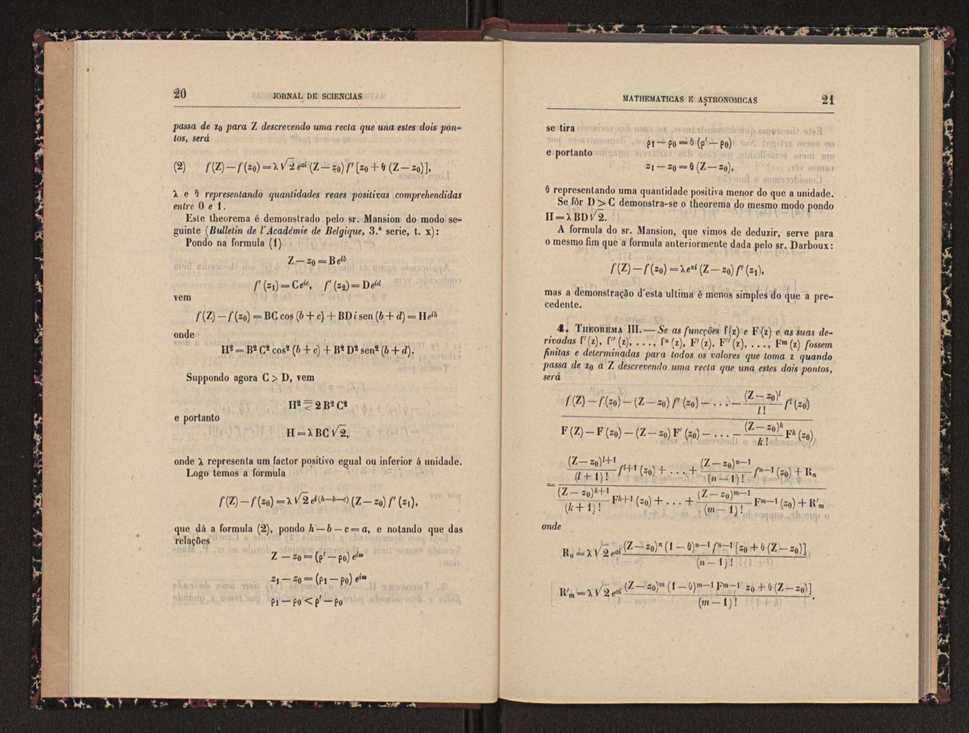 20 JORNAL DE SCIENCIAS
passa de z₀ para Z descrevendo uma recta que una estes dois pon-
tos, será
(2) f(Z) — f(z₀) = λ √2 e^{ai} (Z — z₀) f′ [z₀ + θ (Z — z₀)],
λ e θ representando quantidades reaes positivas comprehendidas
entre 0 e 1.
Este theorema é demonstrado pelo sr. Mansion do modo se-
guinte (Bulletin de l'Académie de Belgique, 3.ª serie, t. x):
Pondo na formula (1)
Z — z₀ = B e^{ib}
f′ (z₁) = C e^{ic}, f′ (z₂) = D e^{id}
vem
f(Z) — f(z₀) = BC cos (b + c) + BD i sen (b + d) = H e^{ih}
onde
H² = B² C² cos² (b + c) + B² D² sen² (b + d).
Suppondo agora C > D, vem
H² ≦ 2 B² C²
e portanto
H = λ BC √2,
onde λ representa um factor positivo egual ou inferior á unidade.
Logo temos a formula
f(Z) — f(z₀) = λ √2 e^{i(h—b—c)} (Z — z₀) f′ (z₁),
que dá a formula (2), pondo h — b — c = a, e notando que das
relações
Z — z₀ = (ρ′ — ρ₀) e^{iω}
z₁ — z₀ = (ρ₁ — ρ₀) e^{iω}
ρ₁ — ρ₀ < ρ′ — ρ₀
MATHEMATICAS E ASTRONOMICAS 21
se tira
ρ₁ — ρ₀ = θ (ρ′ — ρ₀)
e portanto
z₁ — z₀ = θ (Z — z₀),
θ representando uma quantidade positiva menor do que a unidade.
Se fôr D > C demonstra-se o theorema do mesmo modo pondo
H = λ BD √2.
A formula do sr. Mansion, que vimos de deduzir, serve para
o mesmo fim que a formula anteriormente dada pelo sr. Darboux:
f(Z) — f(z₀) = λ e^{αi} (Z — z₀) f′ (z₁),
mas a demonstração d'esta ultima é menos simples do que a pre-
cedente.
4. THEOREMA III. — Se as funcções f(z) e F(z) e as suas de-
rivadas f′ (z), f″ (z), . . . ., fⁿ (z), F′ (z), F″ (z), . . . ., Fᵐ (z) fossem
finitas e determinadas para todos os valores que toma z quando
passa de z₀ a Z descrevendo uma recta que una estes dois pontos,
será
f(Z) — f(z₀) — (Z — z₀) f′ (z₀) — . . . — (Z — z₀)^l / l! f^l (z₀)
F(Z) — F(z₀) — (Z — z₀) F′ (z₀) — . . . — (Z — z₀)^k / k! F^k (z₀)
(Z — z₀)^{l+1} / (l + 1)! f^{l+1} (z₀) + . . . + (Z — z₀)^{n—1} / (n — 1)! f^{n—1} (z₀) + Rₙ
= (Z — z₀)^{k+1} / (k + 1)! F^{k+1} (z₀) + . . . + (Z — z₀)^{m—1} / (m — 1)! F^{m—1} (z₀) + R′ₘ
onde
Rₙ = λ √2 e^{ai} (Z — z₀)ⁿ (1 — θ)^{n—1} fⁿ [z₀ + θ (Z — z₀)] / (n — 1)!
R′ₘ = λ √2 e^{ai} (Z — z₀)ᵐ (1 — θ)^{m—1} Fᵐ z₀ + θ (Z — z₀)] / (m — 1)! .